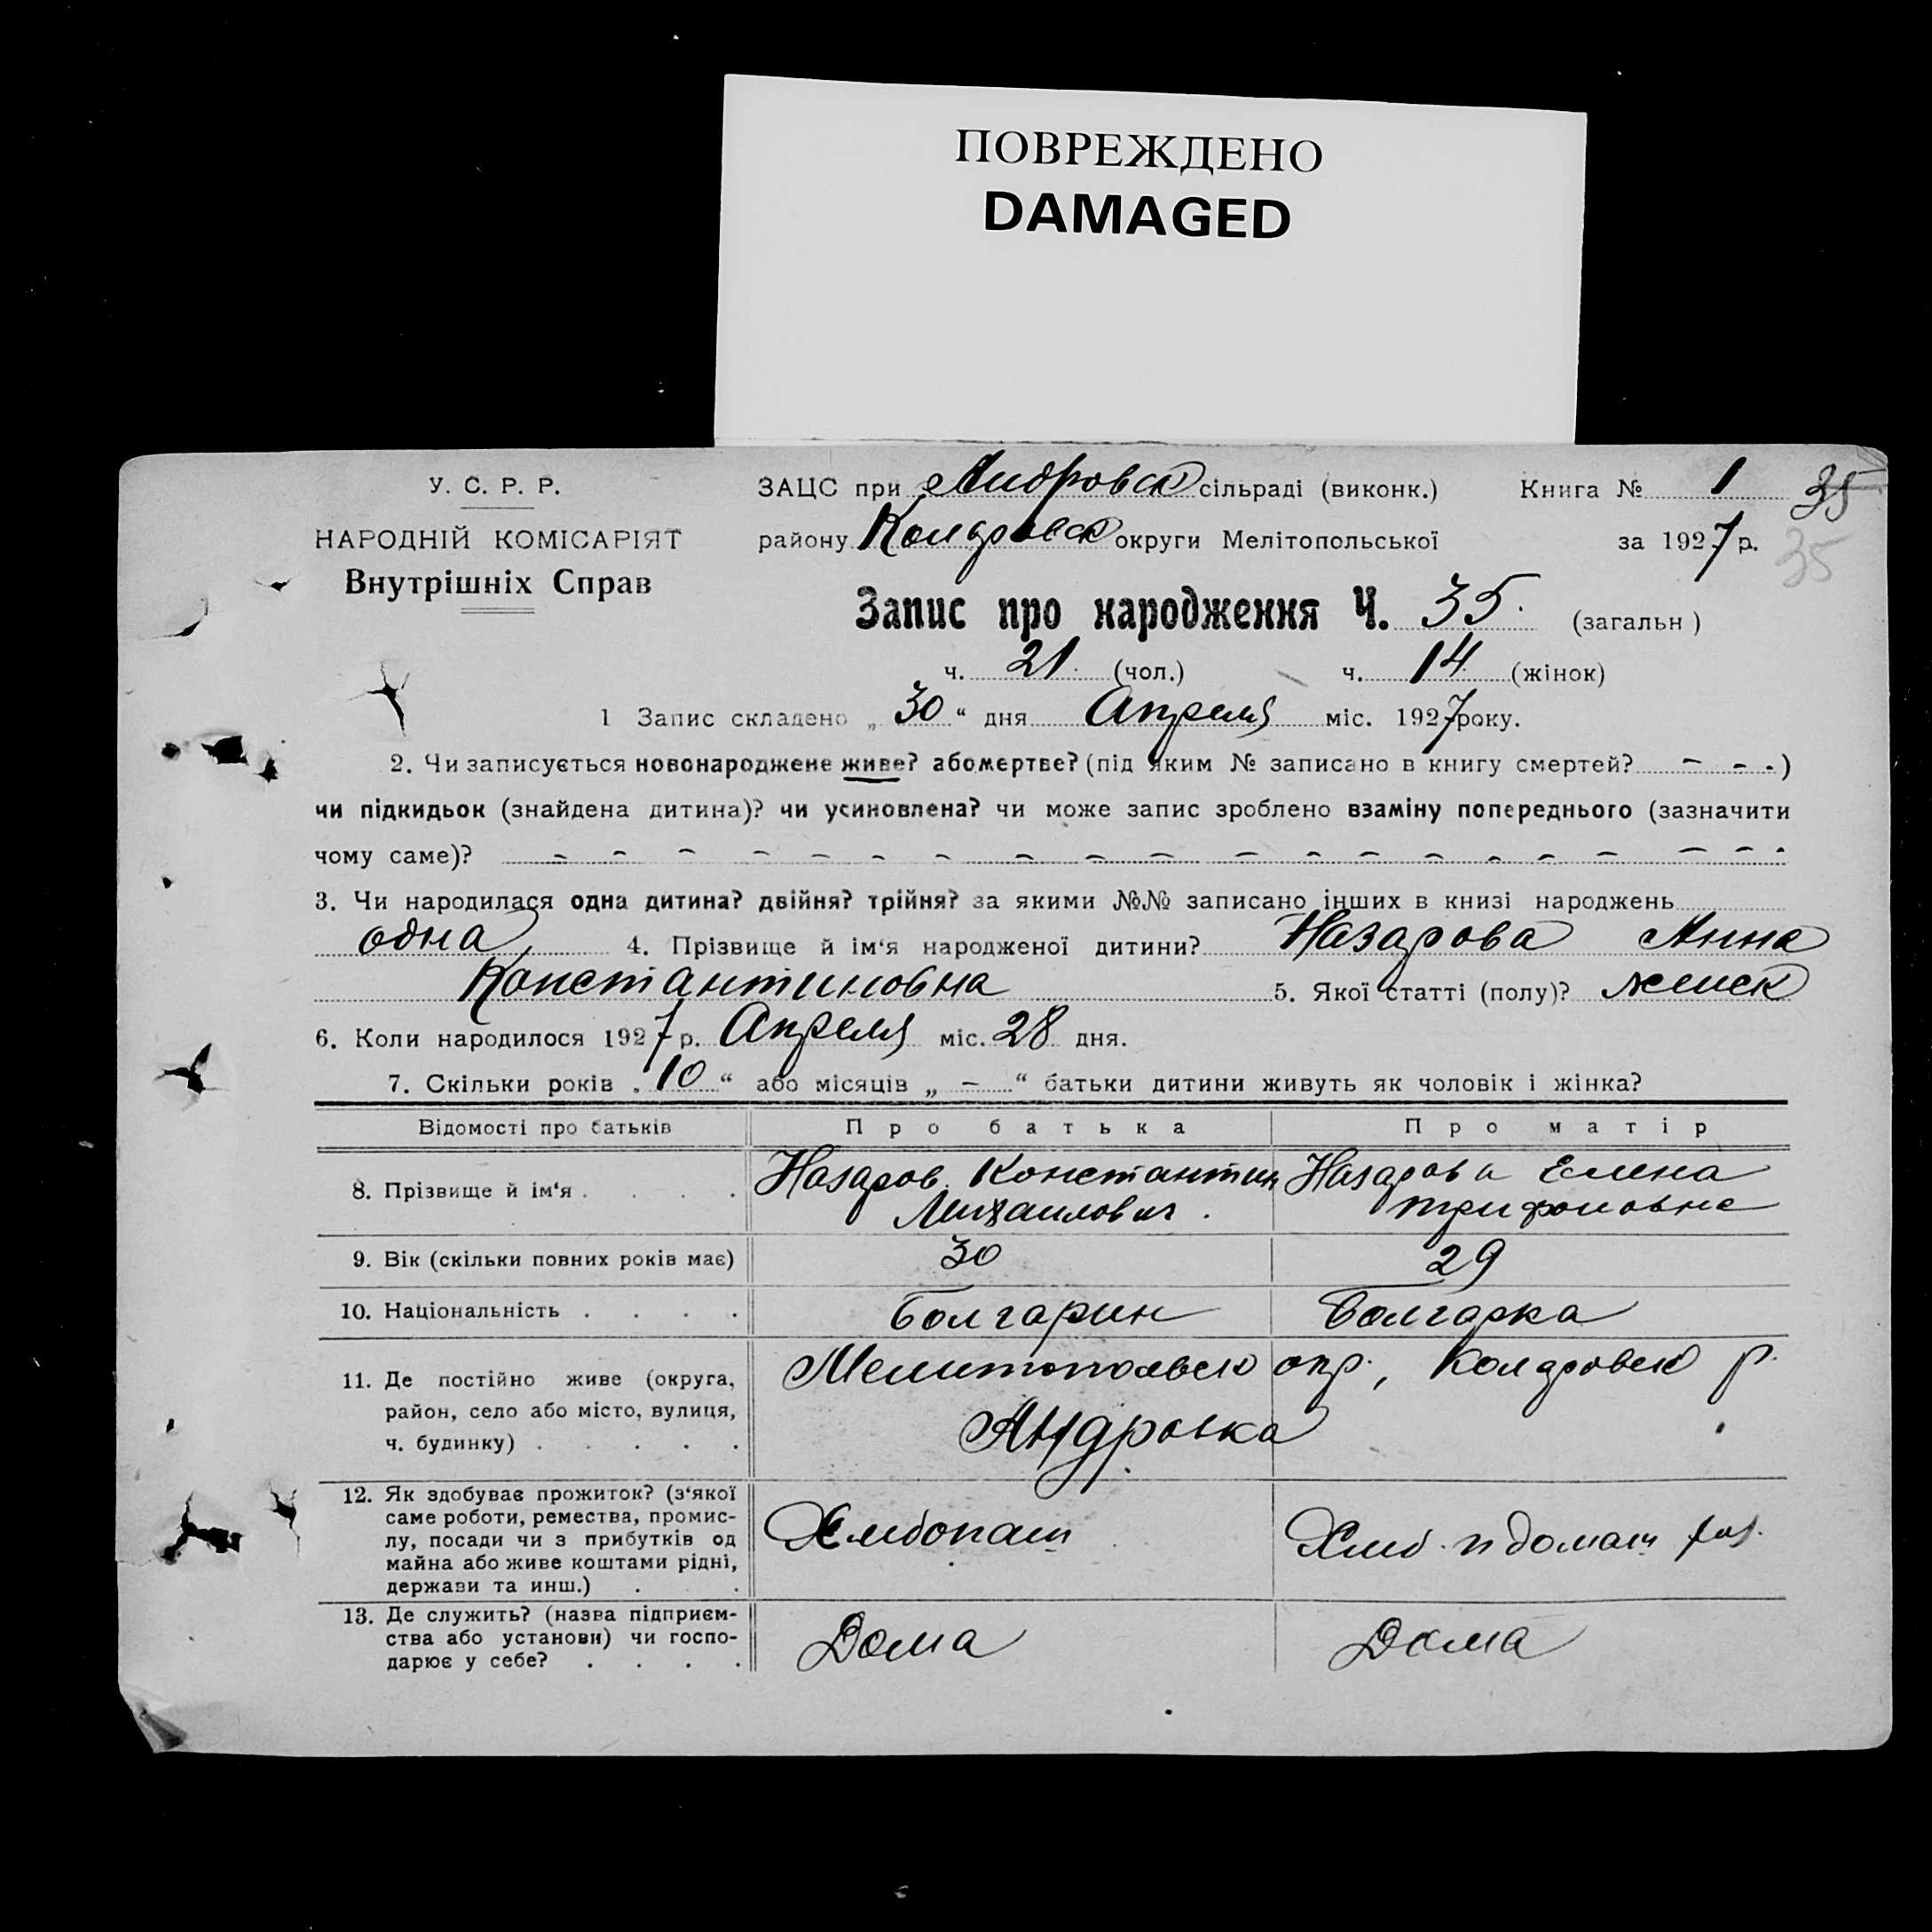 ПОВРЕЖДЕНО
DAMAGED
У. С. Р. Р.
НАРОДНІЙ КОМІСАРІЯТ
Внутрішніх Справ
ЗАЦС при Андровск сільраді (виконк.) Книга № 1 35
району Колдровск округи Мелітопольської за 1927 р. 35
Запис про народження Ч. 35. (загальн)
ч. 21. (чол.) ч. 14 (жінок)
1 Запис складено „ 30 “ дня Апреля міс. 1927 року.
2. Чи записується новонароджене живе? або мертве? (під яким № записано в книгу смертей? - - -)
чи підкидьок (знайдена дитина)? чи усиновлена? чи може запис зроблено взаміну попереднього (зазначити
чому саме)? - - - - - - - - - - - - - - - - - - - -
3. Чи народилася одна дитина? двійня? трійня? за якими №№ записано інших в книзі народжень
одна, 4. Прізвище й ім‘я народженої дитини? Назарова Анна
Константиновна 5. Якої статті (полу)? женск
6. Коли народилося 1927 р. Апреля міс. 28 дня.
7. Скільки років „ 10 “ або місяців „ - “ батьки дитини живуть як чоловік і жінка?
Відомості про батьків Про батька Про матір
8. Прізвище й ім‘я . . . . Назаров Константин Михаилович. Назарова Елена Трифоновна
9. Вік (скільки повних років має) 30 29
10. Національність . . . . Болгарин Болгарка
11. Де постійно живе (округа, Мелитопольск окр., Колдровск р.
район, село або місто, вулиця, Андровка
ч. будинку) . . . . .
12. Як здобуває прожиток? (з‘якої
саме роботи, ремества, промис-
лу, посади чи з прибутків од Хлебопаш Хлеб. и домаш раб.
майна або живе коштами рідні,
держави та инш.) . .
13. Де служить? (назва підприєм-
ства або установи) чи госпо- Дома Дома
дарює у себе? . . . .